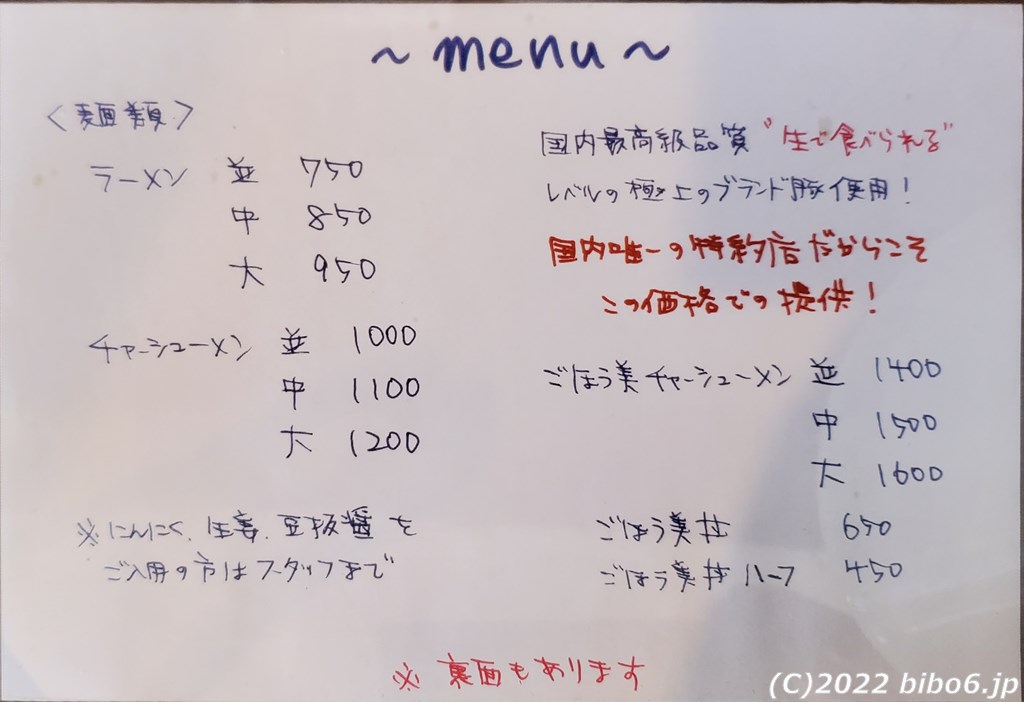 ~menu~
<麺類>
ラーメン 並 750
中 850
大 950
チャーシューメン 並 1000
中 1100
大 1200
※にんにく、生姜、豆板醤を
ご入用の方はスタッフまで
国内最高級品質"生で食べられる"
レベルの極上のブランド豚使用!
国内唯一の特約店だからこそ
この価格での提供!
ごほう美チャーシューメン 並 1400
中 1500
大 1600
ごほう美丼 650
ごほう美丼ハーフ 450
※裏面もあります
(C)2022 bibo6.jp